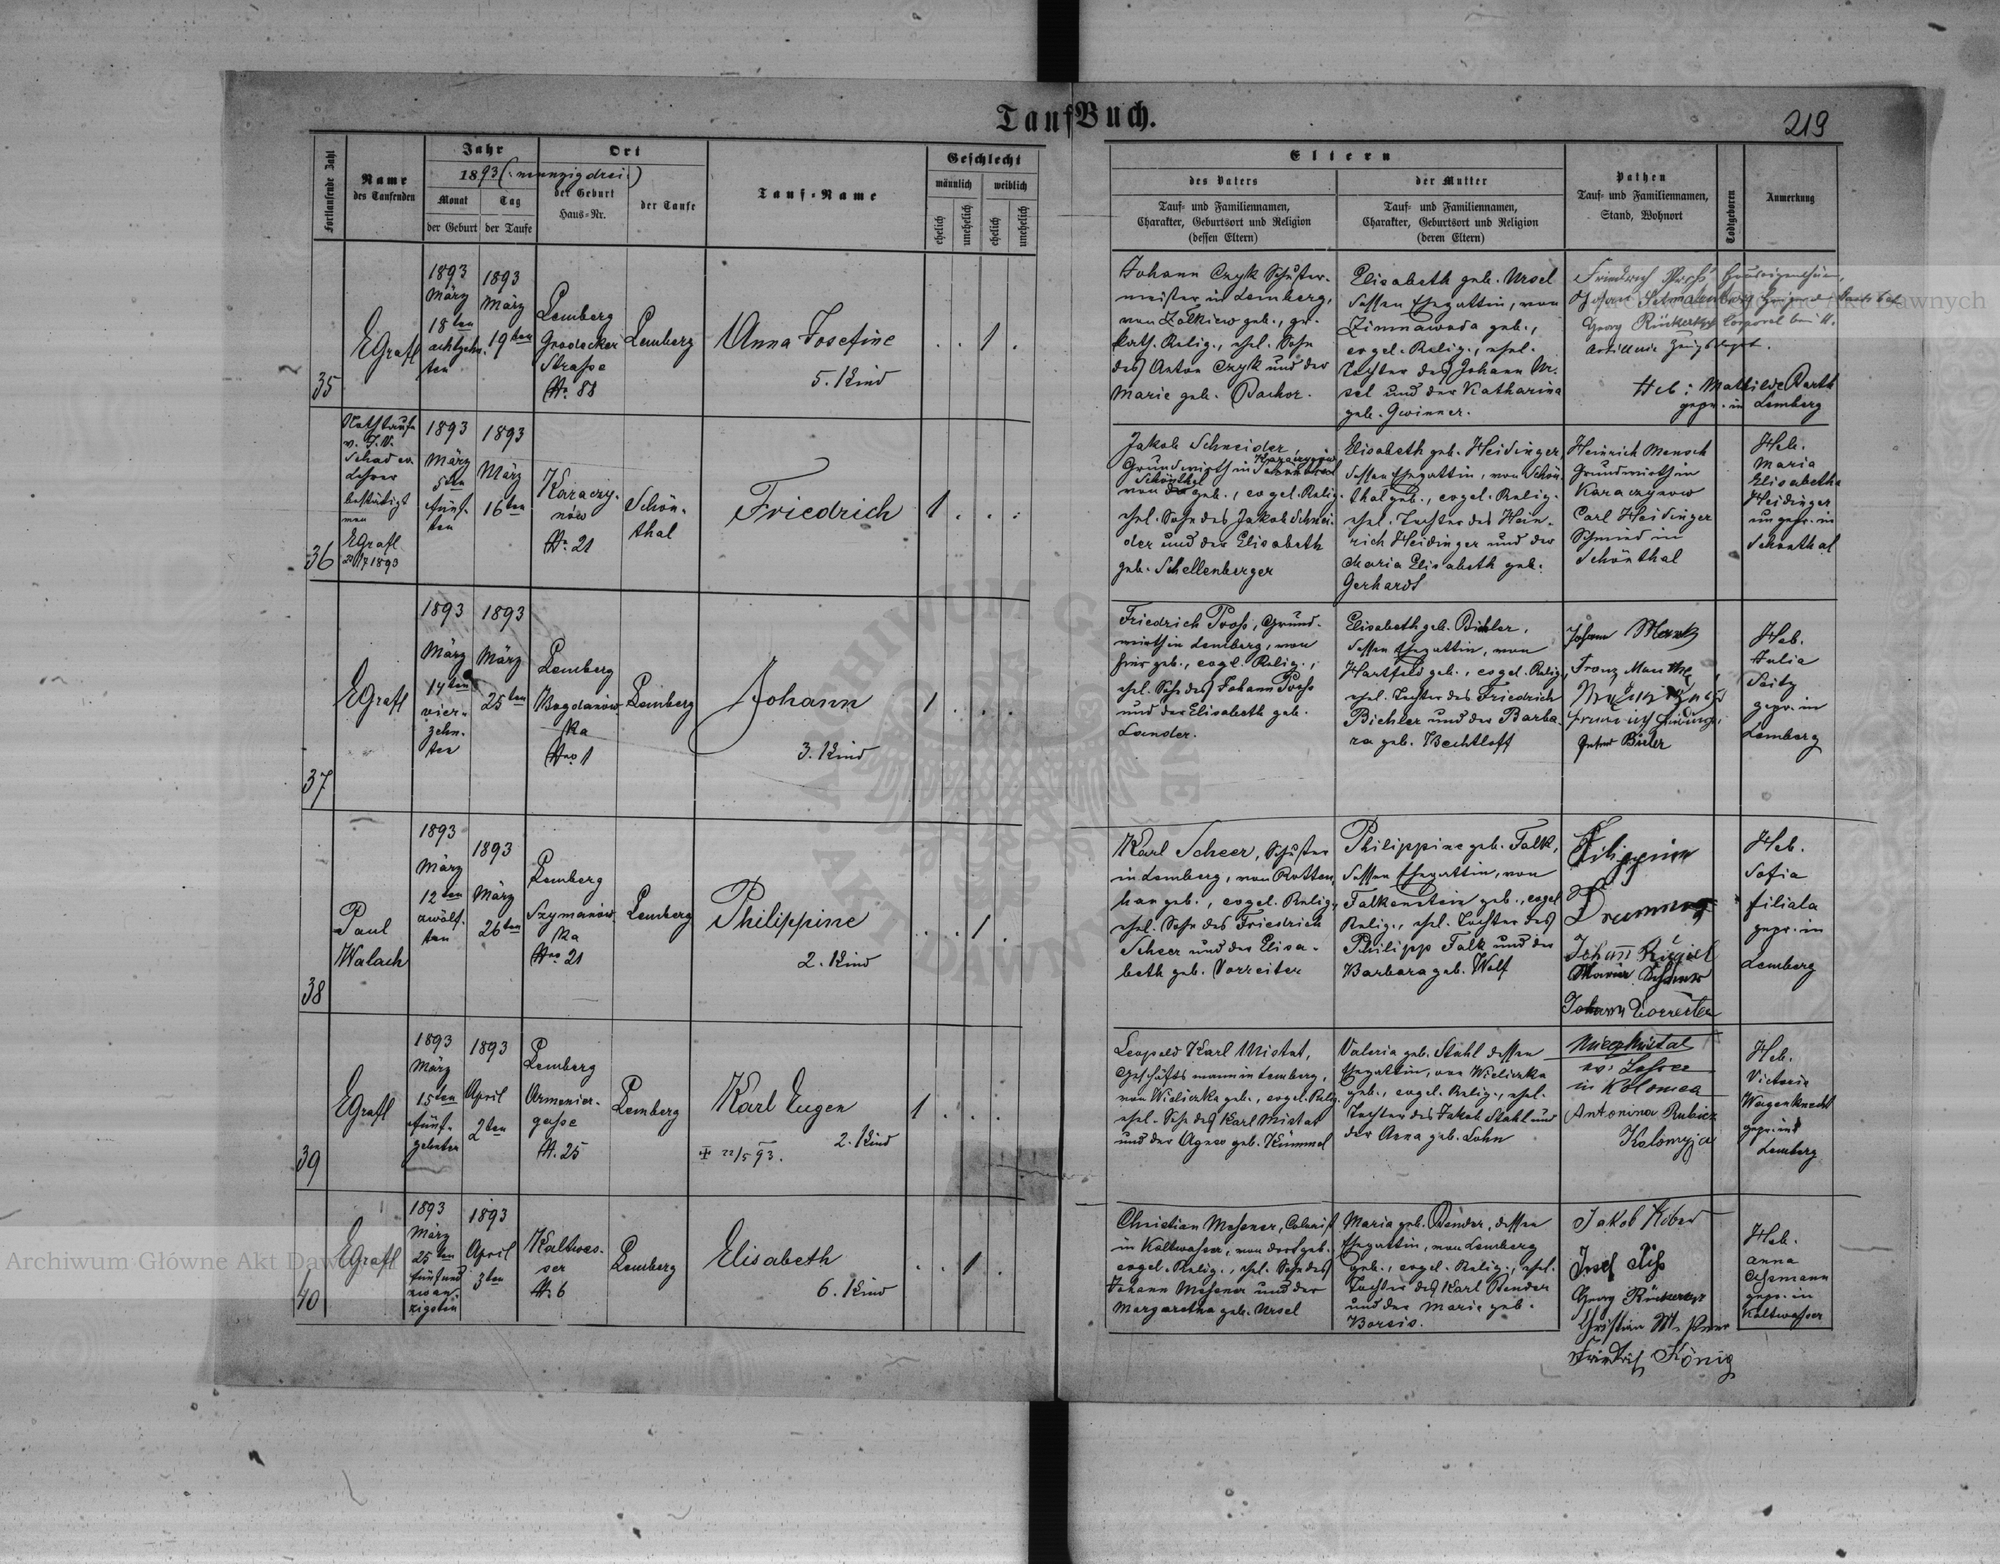 TaufBuch.
219
Fortlaufende Zahl
Name
des Taufenden
Jahr
1893 (neunzigdrei)
Monat
Tag
der Geburt
der Taufe
Ort
der Geburt
Haus-Nr.
der Taufe
Tauf-Name
Geschlecht
männlich
weiblich
ehelich
unehelich
ehelich
unehelich
Eltern
des Vaters
Tauf- und Familiennamen,
Charakter, Geburtsort und Religion
(dessen Eltern)
der Mutter
Tauf- und Familiennamen,
Charakter, Geburtsort und Religion
(deren Eltern)
Pathen
Tauf- und Familiennamen,
Stand, Wohnort
Todtgeboren
Anmerkung
35
EGrafl
1893
März
18ten
achtzehn-
ten
1893
März
19ten
Lemberg
Grodecker
Strasse
Nr. 88
Lemberg
Anna Josefine
5. Kind
1
Johann Czyk Schuster-
meister in Lemberg,
von Zolkiew geb., gr.
kath. Relig., ehel. Sohn
des Anton Czyk und der
Marie geb. Bachor.
Elisabeth geb. Ursel
dessen Ehegattin, von
Zimnawoda geb.,
evgel. Relig., ehel.
Tochter des Johann Ur-
sel und der Katharina
geb. Gwinner.
Georg Rückerkopf Corporal bei
Artillerie
Heb: Mathilde Barth
gepr. in Lemberg
36
Nothtaufe
v. J. V.
Schad ev.
Lehrer
bestätigt
von
EGrafl
1893
1893
März
5ten
fünf-
ten
1893
März
16ten
Karaczy-
nów
Nr. 21
Schön-
thal
Friedrich
1
Jakob Schneider,
Grundwirth in Karaczynów
von Schönthal geb., evgel. Relig.
ehel. Sohn des Jakob Schnei-
der und der Elisabeth
geb. Schellenberger
Elisabeth geb. Heidinger
dessen Ehegattin, von Schön-
thal geb., evgel. Relig.
ehel. Tochter des Hein-
rich Heidinger und der
Maria Elisabeth geb.
Gerhardt
Heinrich Mensch
Grundwirth in
Karaczynow
Carl Heidinger
Schmied in
Schönthal
Heb.
Maria
Elisabetha
Heidinger
ungepr. in
Schönthal
37
EGrafl
1893
März
14ten
vier-
zehn-
ten
1893
März
25ten
Lemberg
Bogdanów-
ka
Nro 1
Lemberg
Johann
3. Kind
1
Friedrich Pross, Grund-
wirth in Lemberg, von
hier geb., evgl. Relig.,
ehel. Sohn des Johann Pross
und der Elisabeth geb.
Lander.
Elisabeth geb. Bichler,
dessen Ehegattin, von
Hartfeld geb., evgel. Relig,
ehel. Tochter des Friedrich
Bichler und der Barba-
ra geb. Bechtloff
Johann Manz
Franz Manthe
Heb.
Julia
Seitz
gepr. in
Lemberg
38
Paul
Walach
1893
März
12ten
zwölf-
ten
1893
März
26ten
Lemberg
Szymanów-
ka
Nro 21
Lemberg
Philippine
2. Kind
1
Karl Scheer, Schuster
in Lemberg, von Rotten-
han geb., evgel. Relig.,
ehel. Sohn des Friedrich
Scheer und der Elisa-
beth geb. Vorreiter
Philippine geb. Falk,
dessen Ehegattin, von
Falkenstein geb., evgel
Relig., ehel. Tochter des
Philipp Falk und der
Barbara geb. Wolf
Filippine
Johann Vorreiter
Heb.
Sofia
Filiala
gepr. in
Lemberg
39
EGrafl
1893
März
15ten
fünf-
zehnten
1893
April
2ten
Lemberg
Armenier-
gasse
N. 25
Lemberg
Karl Eugen
2. Kind
22/5 93.
1
Leopold Karl Mistat,
Geschäftsmann in Lemberg,
von Wieliczka geb., evgel. Relig.
ehel. Sohn des Karl Mistat
und der Agnes geb. Kümmel
Valeria geb. Stahl dessen
Ehegattin, von Wieliczka
geb., evgel. Relig., ehel.
Tochter des Jakob Stahl und
der Anna geb. Lohn
ev. Lehrer
in Kolomea
Antonina Rubicz
Kolomyja
Heb.
Victoria
Wagenknecht
gepr. in
Lemberg
40
EGrafl
1893
März
25ten
fünfund
zwan-
zigsten
1893
April
3ten
Kaltwas-
ser
Nr. 6
Lemberg
Elisabeth
6. Kind
1
Christian Messner, Colonist
in Kaltwasser, von dort geb.
evgel. Relig., ehel. Sohn des
Johann Messner und der
Margaretha geb. Ursel
Maria geb. Bender, dessen
Ehegattin, von Lemberg
geb., evgel. Relig., ehel.
Tochter des Karl Bender
und der Marie geb.
Borsis.
Jakob Kober
Georg Rückerkopf
Friedrich König
Heb.
Anna
Ossmann
gepr. in
Kaltwasser
Archiwum Główne Akt Dawnych